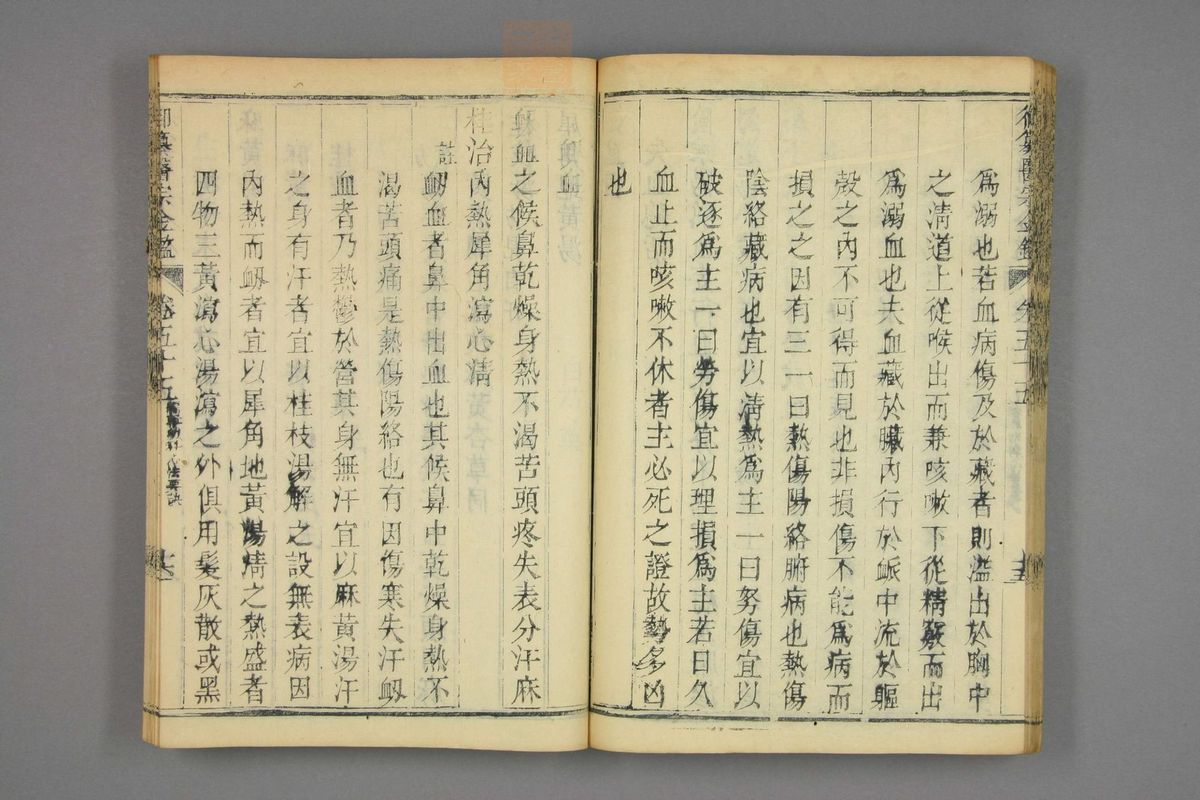 御纂醫宗金鑑 卷五十五
爲溺也若血病傷及於藏者則溢出於胸中
之淸道上從喉出而兼咳嗽下從精竅而出
爲溺血也夫血藏於臟內行於脈中流於軀
殼之內不可得而見也非損傷不能爲病而
損之之因有三一曰熱傷陽絡腑病也熱傷
陰絡藏病也宜以淸熱爲主一曰努傷宜以
破逐爲主一曰勞傷宜以理損爲主若日久
血止而咳嗽不休者主必死之證故勢多凶
也
衂血之候鼻乾燥身熱不渴苦頭疼失表分汗麻
桂治內熱犀角瀉心淸
註
衂血者鼻中出血也其候鼻中乾燥身熱不
渴苦頭痛是熱傷陽絡也有因傷寒失汗衂
血者乃熱鬱於營其身無汗宜以麻黃湯汗
之身有汗者宜以桂枝湯解之設無表病因
內熱而衂者宜以犀角地黃湯淸之熱盛者
四物三黃瀉心湯瀉之外俱用髮灰散或黑
御纂醫宗金鑑 卷五十五